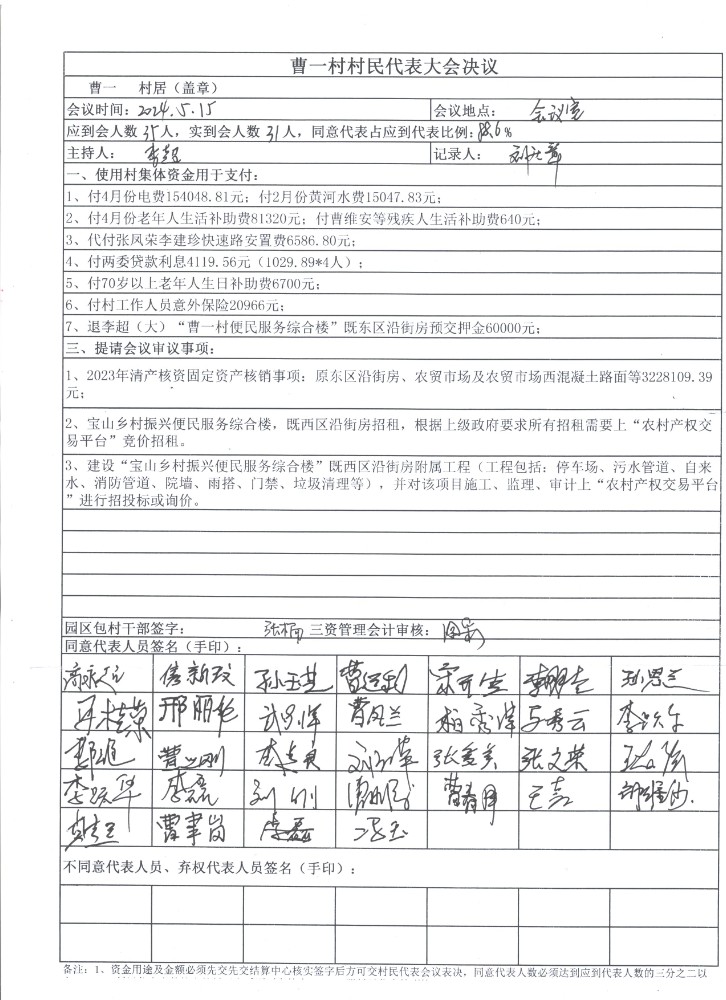 曹一村村民代表大会决议
曹一 村居（盖章）
会议时间：2024.5.15 会议地点：会议室
应到会人数35人，实到会人数31人，同意代表占应到代表比例：88.6%
主持人： 记录人：
一、使用村集体资金用于支付：
1、付4月份电费154048.81元；付2月份黄河水费15047.83元；
2、付4月份老年人生活补助费81320元；付曹维安等残疾人生活补助费640元；
3、代付张凤荣李建珍快速路安置费6586.80元；
4、付两委贷款利息4119.56元（1029.89*4人）；
5、付70岁以上老年人生日补助费6700元；
6、付村工作人员意外保险20966元；
7、退李超（大）“曹一村便民服务综合楼”既东区沿街房预交押金60000元；
三、提请会议审议事项：
1、2023年清产核资固定资产核销事项：原东区沿街房、农贸市场及农贸市场西混凝土路面等3228109.39
元；
2、宝山乡村振兴便民服务综合楼，既西区沿街房招租，根据上级政府要求所有招租需要上“农村产权交
易平台”竞价招租。
3、建设“宝山乡村振兴便民服务综合楼”既西区沿街房附属工程（工程包括：停车场、污水管道、自来
水、消防管道、院墙、雨搭、门禁、垃圾清理等），并对该项目施工、监理、审计上“农村产权交易平台
”进行招投标或询价。
园区包村干部签字： 三资管理会计审核：
同意代表人员签名（手印）：
信新政 孙玉芝
邢丽华 曹凤兰
张文英
李跃华 李磊 曹春月 王喜
曹聿岗 李磊 冯玉
不同意代表人员、弃权代表人员签名（手印）：
备注：1、资金用途及金额必须先交先交结算中心核实签字后方可交村民代表会议表决，同意代表人数必须达到应到代表人数的三分之二以